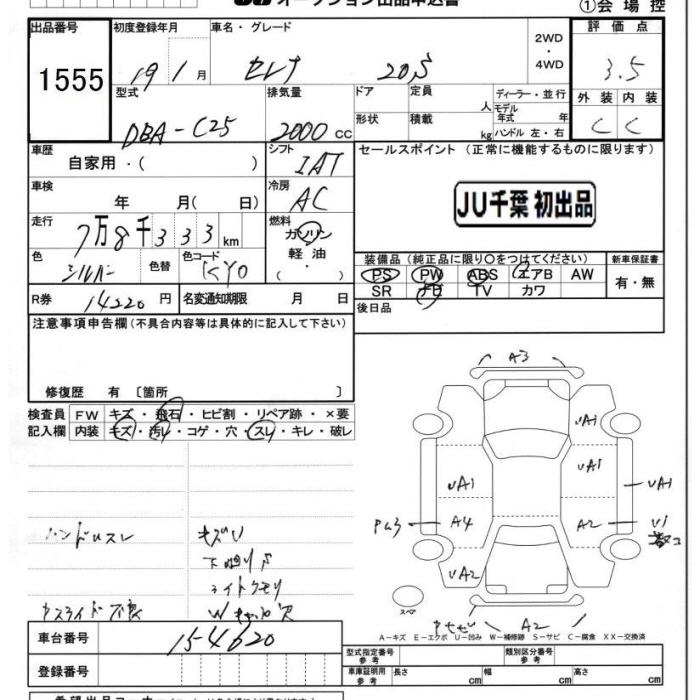 ①会場控
出品番号 初度登録年月 車名・グレード 2WD・4WD 評価点
1555 19 1月 セレナ 20S 3.5
型式 排気量 ドア 定員 人 ディーラー・並行 外装 内装
DBA-C25 2000cc 形状 積載 kg モデル年式 年 ハンドル 左・右 C C
車歴 自家用・( ) シフト IAT セールスポイント (正常に機能するものに限ります)
車検 年 月( 日) 冷房 AC JU千葉 初出品
走行 7万8千333km 燃料 ガソリン
軽油
・
色 シルバー 色替 色コード KY0
装備品 (純正品に限り○をつけてください) 新車保証書
PS PW ABS エアB AW 有・無
SR ナビ TV カワ
R券 14220円 名変通知期限 月 日 後日品
注意事項申告欄 (不具合内容等は具体的に記入して下さい)
修復歴 有 〔箇所 〕
検査員 FW キズ・飛石・ヒビ割・リペア跡・×要
記入欄 内装 キズ・汚れ・コゲ・穴・スレ・キレ・破レ
A3
UA1
UA1
UA1 UA1
A4 A2
UA2
A2
ハンドルスレ キズU
ライトクモリ
スペア
A-キズ E-エクボ U-凹み W-補修跡 S-サビ C-腐食 XX-交換済
車台番号 154620
登録番号
型式指定番号 参考 類別区分番号 参考
車庫証明用 参考 長さ cm 幅 cm 高さ cm